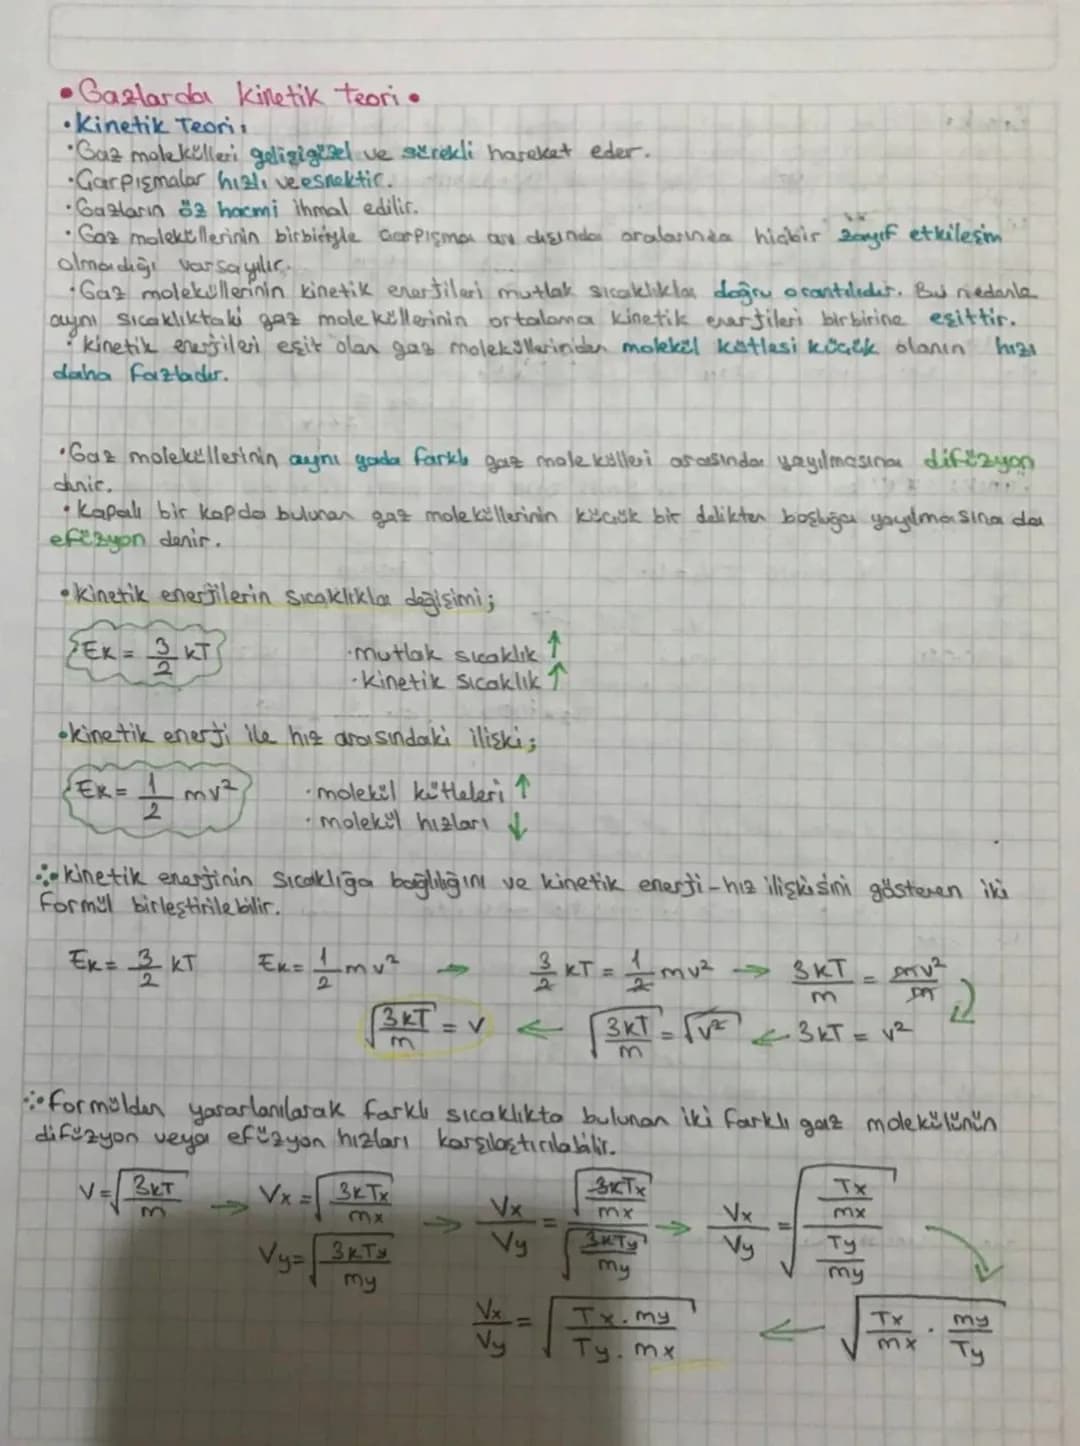 • Gazlarda Kinetik Teori •
• Kinetik Teori:
• Gaz molekülleri gelişigüzel ve sürekli hareket eder.
• Çarpışmalar hızlı ve esnektir.
• Gazların öz hacmi ihmal edilir.
• Gaz moleküllerinin birbiriyle çarpışma anı dışında aralarında hiçbir zayıf etkileşim
olmadığı varsayılır.
• Gaz moleküllerinin kinetik enerjileri mutlak sıcaklıkla doğru orantılıdır. Bu nedenle
aynı sıcaklıktaki gaz moleküllerinin ortalama kinetik enerjileri birbirine eşittir.
• kinetik enerjileri eşit olan gaz moleküllerinden molekül kütlesi küçük olanın hızı
daha fazladır.
• Gaz moleküllerinin aynı yada farklı gaz molekülleri arasında yayılmasına difüzyon
denir.
• Kapalı bir kapda bulunan gaz moleküllerinin küçük bir delikten boşluğa yayılmasına da
efüzyon denir.
• Kinetik enerjilerin sıcaklıkla değişimi;
EK = 3/2 kT
• mutlak sıcaklık ↑
• Kinetik sıcaklık ↑
• kinetik enerji ile hız arasındaki ilişki;
EK = 1/2 mv²
• molekül kütleleri ↑
• molekül hızları ↓
• kinetik enerjinin sıcaklığa bağlılığını ve kinetik enerji-hız ilişkisini gösteren iki
formül birleştirilebilir.
EK = 3/2 kT EK = 1/2 mv² → 3/2 kT = 1/2 mv² → 3kT/m = mv²/m
√(3kT/m) = v ← √(3kT/m) = √v² ← 3kT = v²
• formülden yararlanılarak farklı sıcaklıkta bulunan iki farklı gaz molekülünün
difüzyon veya efüzyon hızları karşılaştırılabilir.
V = √(3kT/m) → Vx = √(3kTx/mx) → Vx/Vy = √(3kTx/mx)/√(3kTy/my) → Vx/Vy = √((Tx/mx)/(Ty/my))
Vy = √(3kTy/my)
Vx/Vy = √(Tx.my/Ty.mx) ← √(Tx/mx . my/Ty)